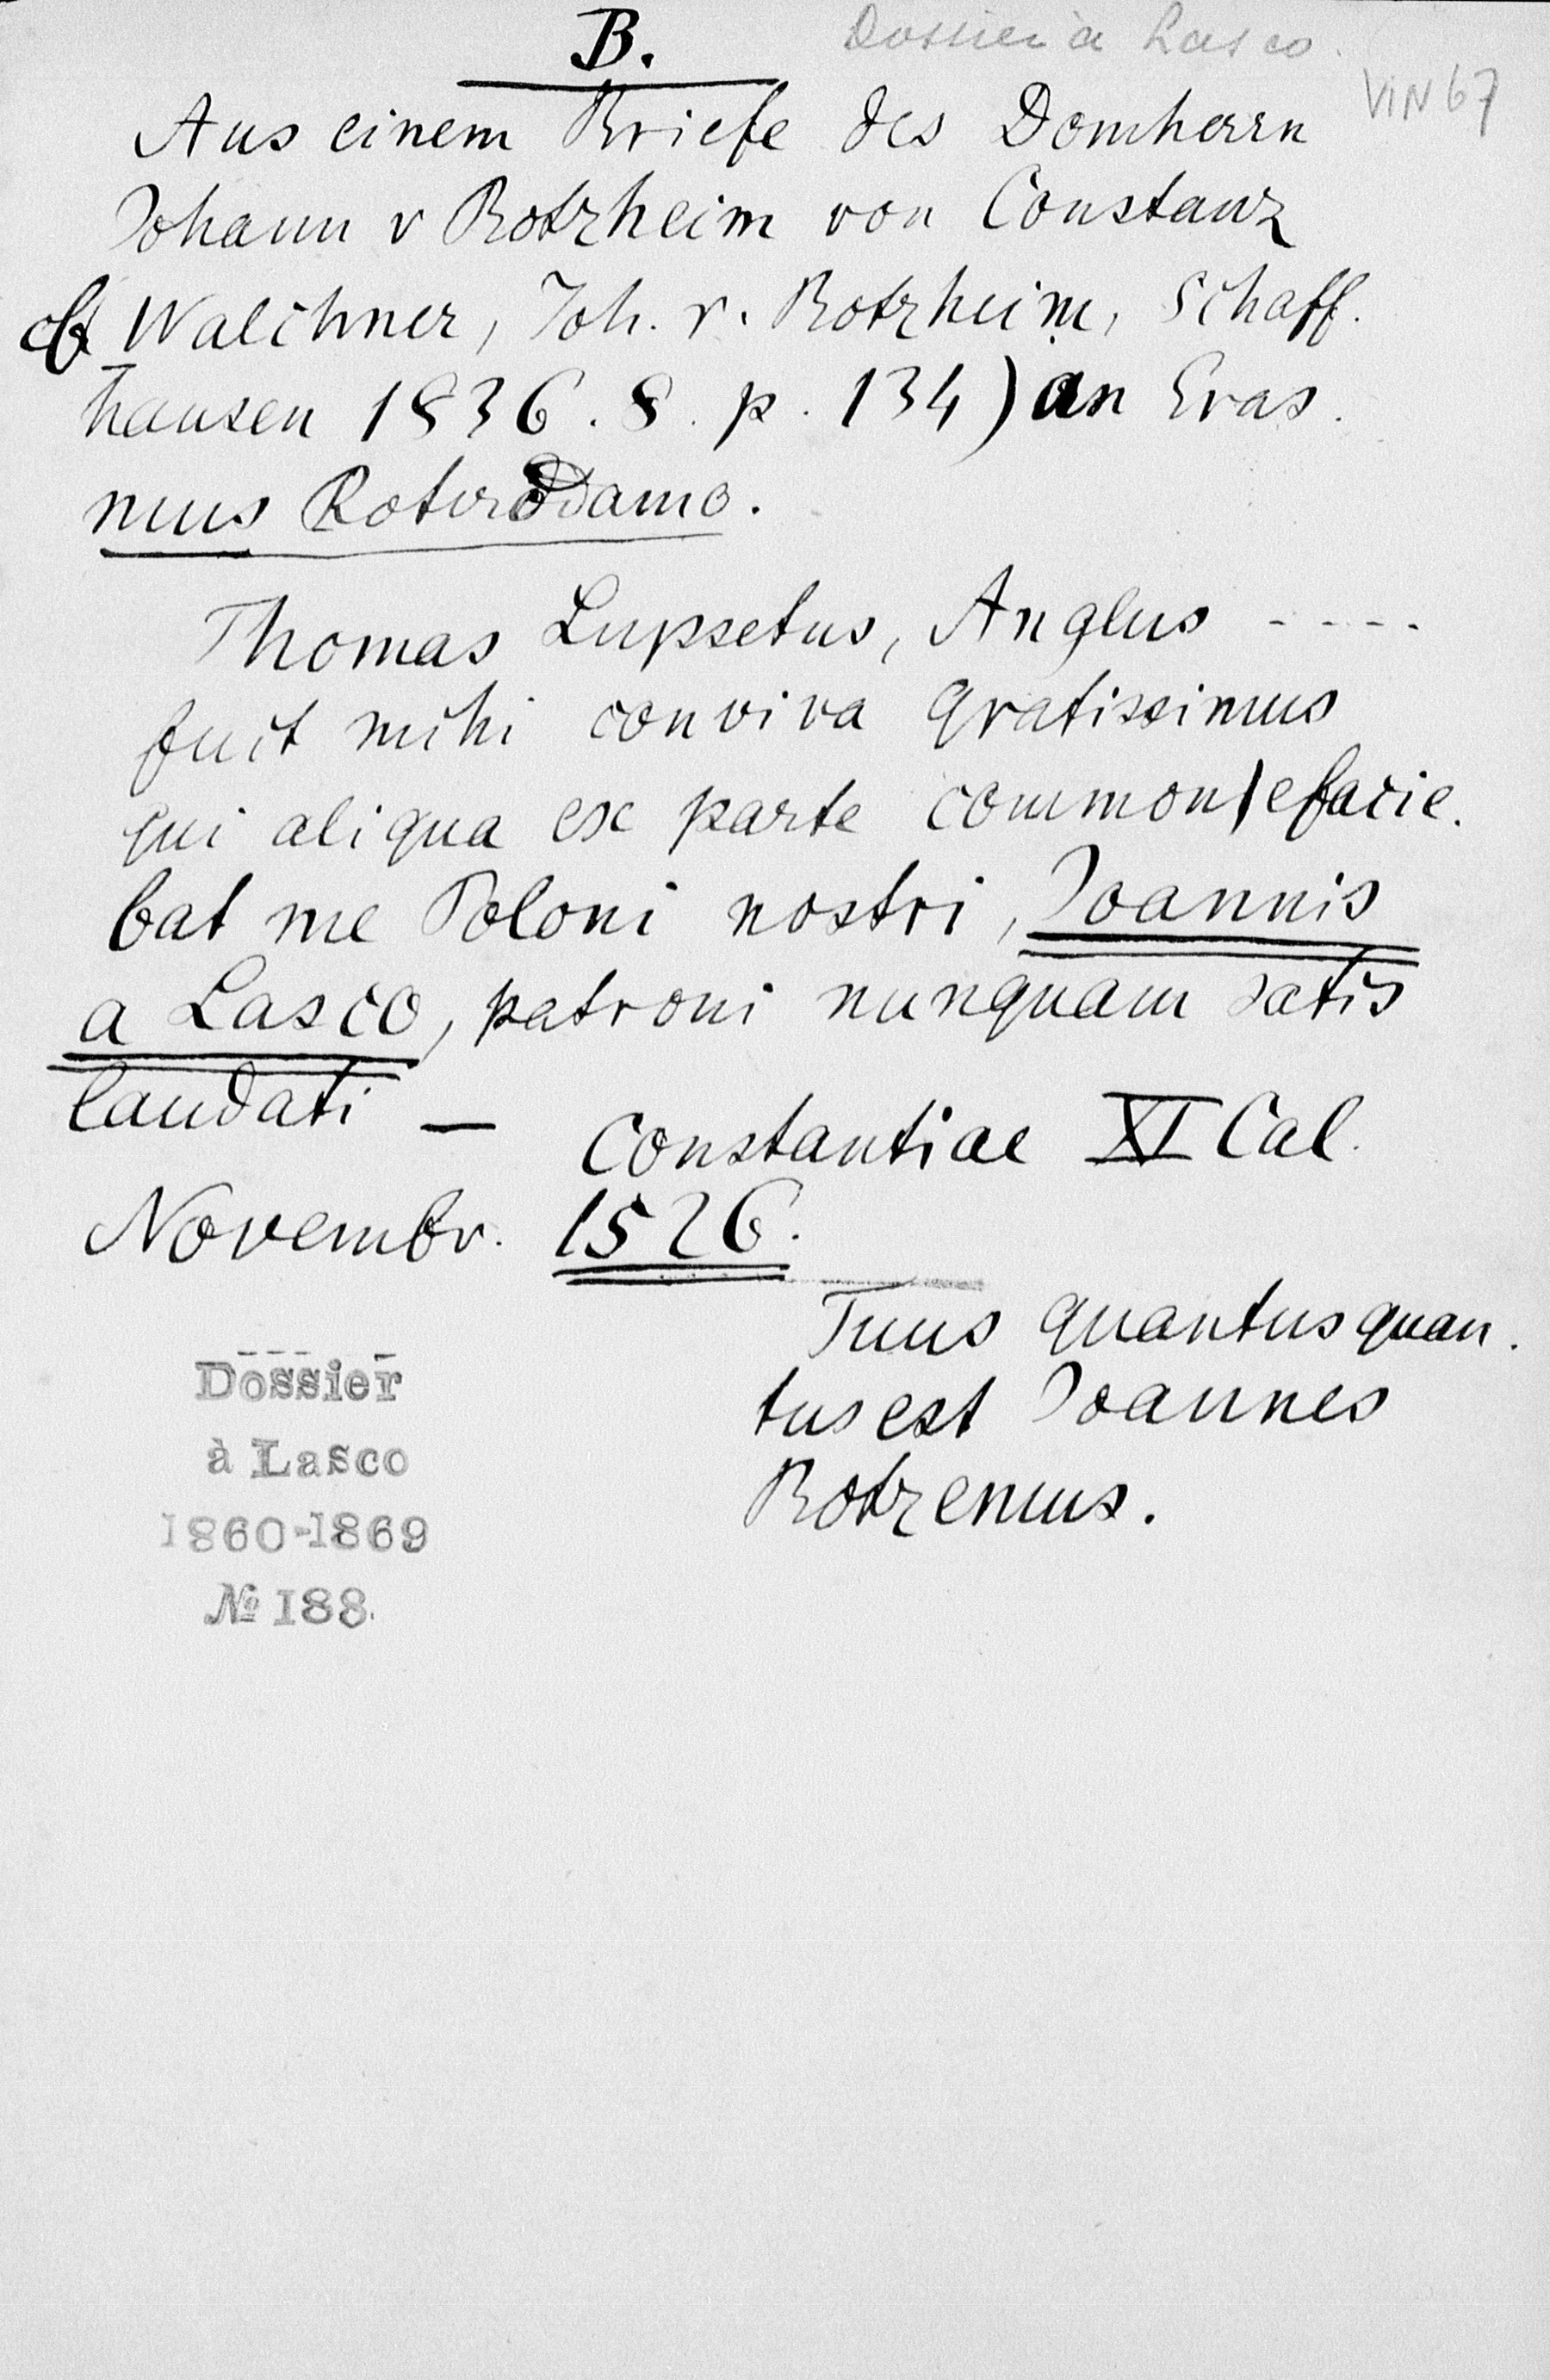 B.
Dossier à Lasco.
VIN 67
Aus einem Briefe des Domherrn
Johann v Botzheim von Constanz
cf Walchner, Joh. v. Botzheim, Schaff.
hausen 1836. 8. p. 134) an Eras.
mus Roterodamo.
Thomas Lupsetus, Anglus - - - - -
fuit mihi conviva gratissimus
qui aliqua ex parte commonefacie.
bat me Poloni nostri, Joannis
a Lasco, patroni nunquam satis
laudati —
Constantiae XI Cal.
Novembr. 1526.
Tuus quantus quan.
tus est Joannes
Botzemus.
Dossier
à Lasco
1860-1869
№ 188.